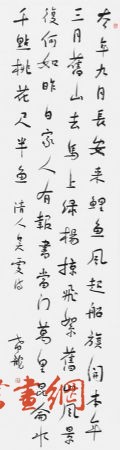 去年九月長安來鯉魚風起船旗開本年
三月舊山去馬上綠楊掠飛絮舊山風景
復何如昨日家人有報書當門萬里昆侖水
千點桃花尺半魚 清人吳雯詩
書畫網